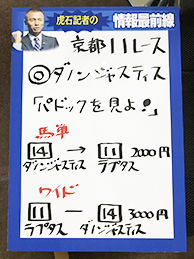 虎石記者の
情報最前線
京都11レース
◎ダノンジャスティス
「パドックを見よ!」
馬単
14 → 11 2000円
ダノンジャスティス ラプタス
ワイド
11 ー 14 3000円
ラプタス ダノンジャスティス